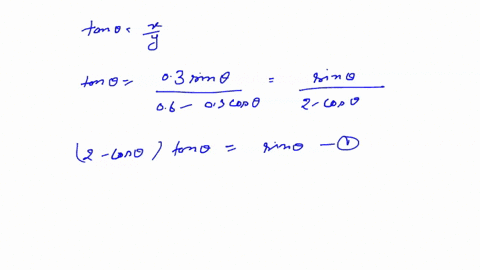 tanθ = x/y
tanθ = 0.3 sinθ / 0.6 - 0.3 cosθ = sinθ / 2 - cosθ
(2 - cosθ) tanθ = sinθ — ①